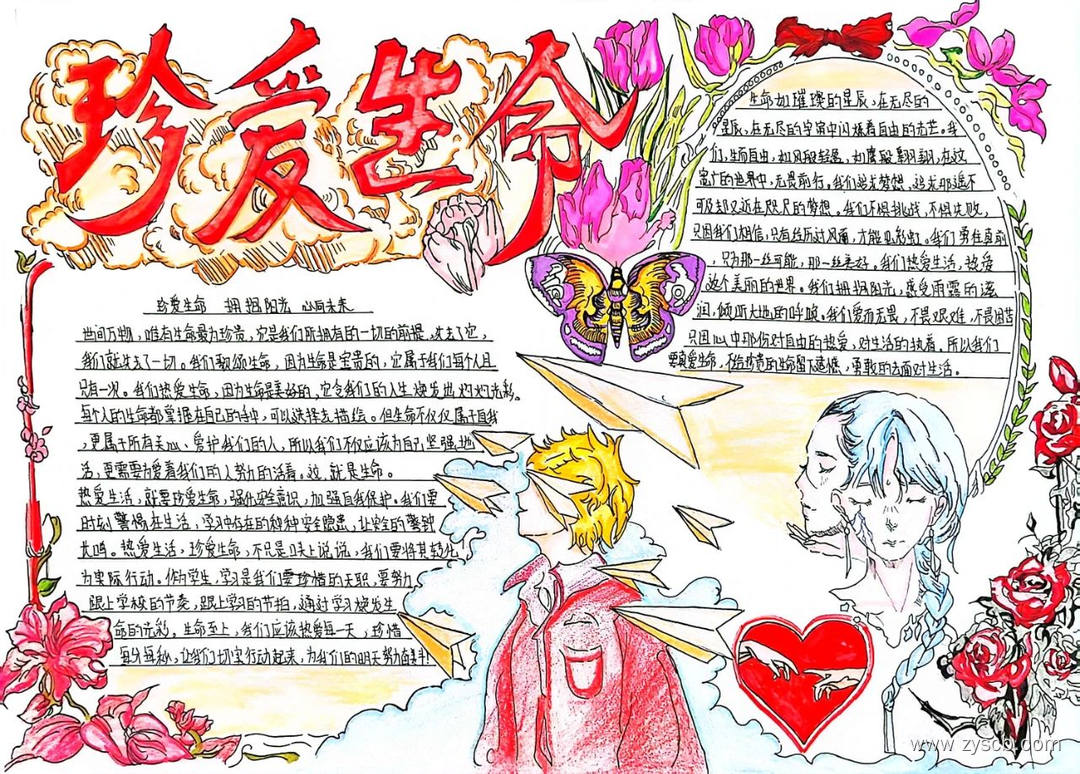 珍爱生命
珍爱生命 拥抱阳光 心向未来
世间万物，唯有生命最为珍贵，它是我们所拥有的一切的前提，失去了它，
我们就失去了一切。我们歌颂生命，因为生命是宝贵的，它属于我们每个人且
只有一次。我们热爱生命，因为生命是美好的，它令我们的人生焕发出灼灼光彩。
每个人的生命都掌握在自己的手中，可以选择去描绘。但生命不仅仅属于自我
，更属于所有关心、爱护我们的人，所以我们不仅应该为自己坚强地
活，更需要为爱着我们的人努力的活着。这，就是生命。
热爱生活，就要珍爱生命，强化安全意识，加强自我保护。我们要
时刻警惕在生活，学习中存在的种种安全隐患，让安全的警钟
长鸣。热爱生活，珍爱生命，不只是口头上说说，我们要将其转化
为实际行动。作为学生，学习是我们要珍惜的天职，要努力
跟上学校的节奏，跟上学习的节拍，通过学习焕发生
命的光彩。生命至上，我们应该热爱每一天，珍惜
每分每秒，让我们切实行动起来，为我们的明天努力奋斗！
生命如璀璨的星辰，在无尽的
星辰，在无尽的宇宙中闪烁着自由的光芒。我
们，生而自由，如风般轻盈，如鹰般翱翔，在这
宽广的世界中，无畏前行。我们追求梦想，追求那遥不
可及却又近在咫尺的梦想。我们不惧挑战，不惧失败，
只因我们相信，只有经历过风雨，才能见彩虹。我们勇往直前
，只为那一丝可能，那一丝美好。我们热爱生活，热爱
这个美丽的世界。我们拥抱阳光，感受雨露的滋
润，倾听大地的呼唤。我们爱而无畏，不畏艰难，不畏困苦
只因心中那份对自由的热爱，对生活的执着，所以我们
要珍爱生命，不给珍贵的生命留下遗憾，勇敢的去面对生活。
www.zyscb.com